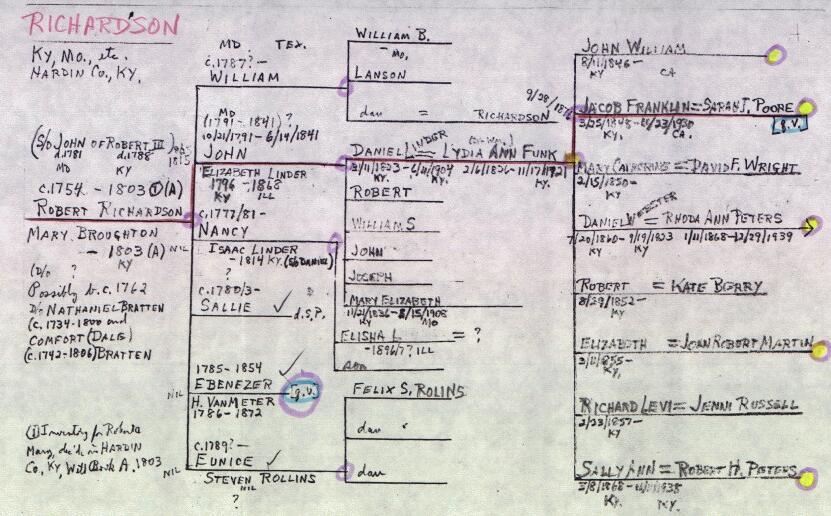 RICHARDSON
KY, MO., etc.
HARDIN CO., KY.
(S/O JOHN OF ROBERT III)
d.1781 d.1788
MD KY
1815
c.1754. - 1803 ① (A)
ROBERT RICHARDSON
MARY BROUGHTON
- 1803 (A) NIL
KY
(D/O ?
Possibly b.c. 1762
D/o NATHANIEL BRATTEN
(c. 1734-1800 and
COMFORT (DALE)
(c.1742-1806) BRATTEN
(1) Inventory for Robert &
Mary, dec'd. in HARDIN
Co, KY, Will Book A, 1803
MD TEX.
c.1787? -
WILLIAM
MD
(1791 - 1841) ?
10/21/1791 - 6/14/1841
JOHN
ELIZABETH LINDER
1796 - 1868
KY ILL
c.1777/81 -
NANCY
ISAAC LINDER
- 1814 KY. (S/o DANIEL)
?
c.1780/3 -
SALLIE ✓ d.S.P.
1785 - 1854 ✓
EBENEZER [q.v.]
NIL H. VANMETER
1786 - 1872
c.1789? -
EUNICE ✓
NIL STEVEN ROLLINS
NIL
?
WILLIAM B.
- MO.
LANSON
dau = RICHARDSON
9/28/18
DANIEL LINDER = LYDIA ANN FUNK
KY. KY. 2/6/1826 - 11/17/1921
KY.
ROBERT
WILLIAM S
JOHN
JOSEPH
MARY ELIZABETH
11/21/1836 - 8/15/1908
KY MO
ELISHA L = ?
- 1896/7? ILL
son
FELIX S. ROLINS
dau
dau
JOHN WILLIAM
8/11/1846 -
KY CA
JACOB FRANKLIN = SARAH J. POORE
KY. CA. [q.v.]
MARY CATHERINE = DAVID F. WRIGHT
2/15/1850 -
KY
DANIEL WEBSTER = RHODA ANN PETERS
1/11/1868 - 12/29/1939
KY
ROBERT = KATE BERRY
8/29/1852 -
KY
ELIZABETH = JOHN ROBERT MARTIN
KY.
RICHARD LEVI = JENNI RUSSELL
2/23/1857 -
KY
SALLY ANN = ROBERT H. PETERS
KY. KY.